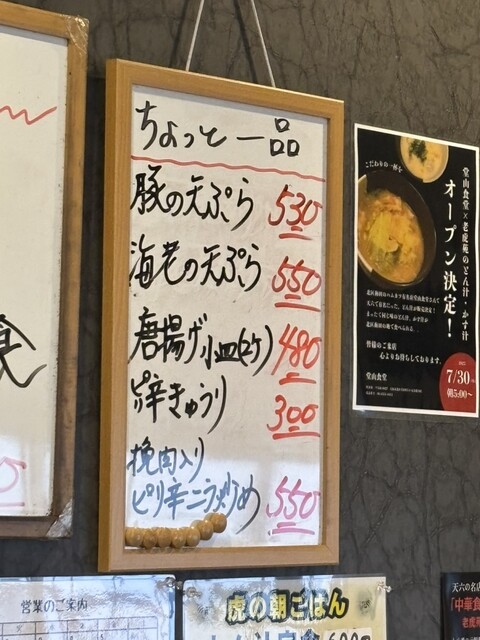 ちょっと一品
豚の天ぷら 530
海老の天ぷら 550
唐揚げ小皿(2ケ) 480
辛きゅうり 300
挽肉入り
ピリ辛ニラ炒め 550
こだわりの一杯を
堂山食堂×老虎苑のとん汁・かす汁
オープン決定!
皆様のご来店
心よりお待ちしております。
堂山食堂
7/30
朝5:00〜
食
営業のご案内
虎の朝ごはん
天六の名店
「中華食
老虎苑